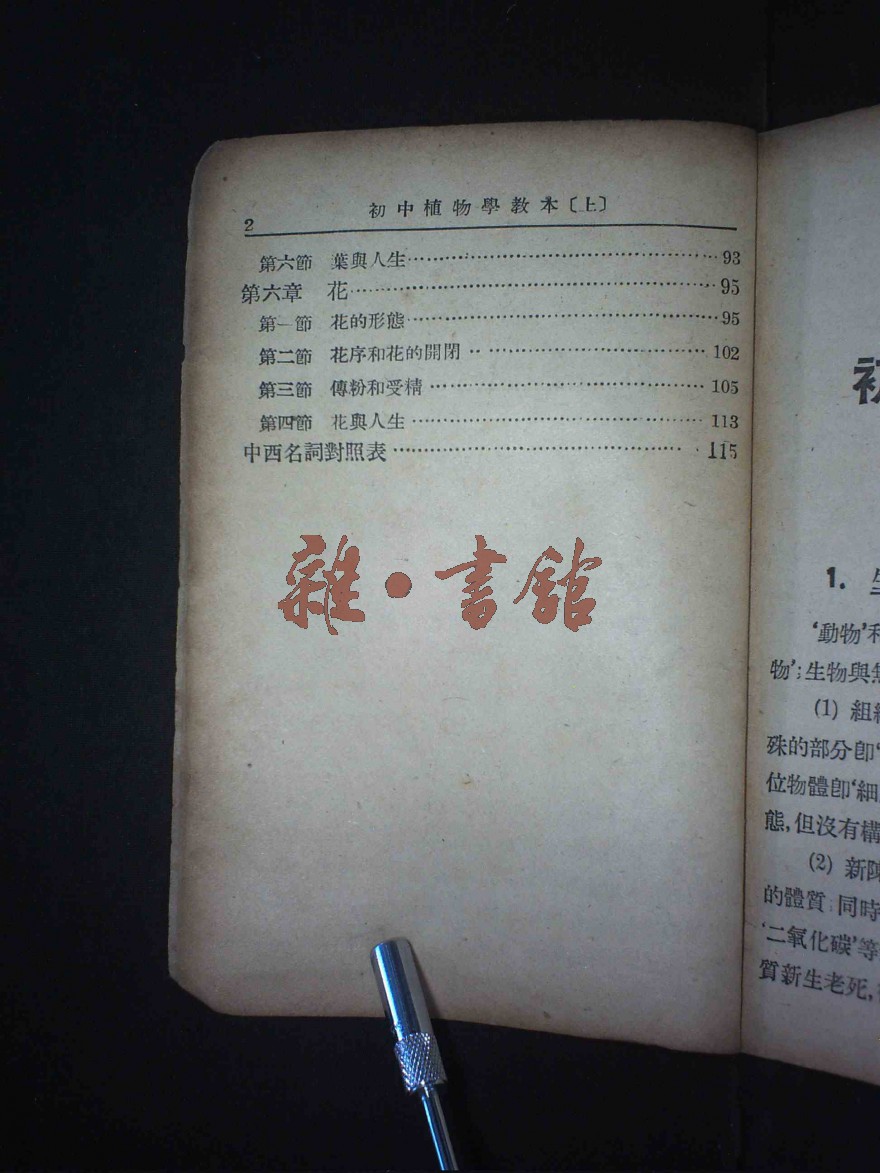 2
初中植物學教本〔上〕
第六節 葉與人生 93
第六章 花 95
第一節 花的形態 95
第二節 花序和花的開閉 102
第三節 傳粉和受精 105
第四節 花與人生 113
中西名詞對照表 115
雜·書館
初
1. 生
‘動物’和
物’;生物與無
(1) 組織
殊的部分卽‘
位物體卽‘細
態,但沒有構
(2) 新陳
的體質 同時
‘二氧化碳’等
質新生老死,